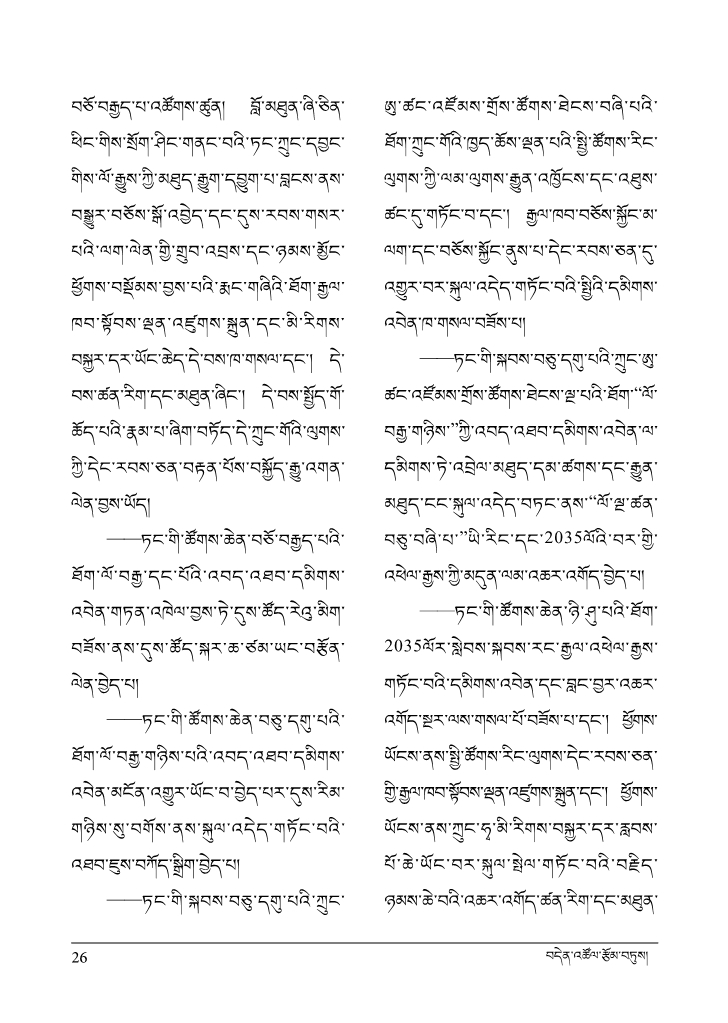 བཅོ་བརྒྱད་པ་འཚོགས་ཚུན།  བློ་མཐུན་ཞི་ཅིན་
ཕིང་གིས་སྲོག་ཤིང་གནང་བའི་ཏང་ཀྲུང་དབྱང་
གིས་ལོ་རྒྱུས་ཀྱི་མཐུད་རྒྱུག་དབྱུག་པ་བླངས་ནས་
བསྒྱུར་བཅོས་སྒོ་འབྱེད་དང་དུས་རབས་གསར་
པའི་ལག་ལེན་གྱི་གྲུབ་འབྲས་དང་ཉམས་མྱོང་
ཕྱོགས་བསྡོམས་བྱས་པའི་རྨང་གཞིའི་ཐོག་རྒྱལ་
ཁབ་སྟོབས་ལྡན་འཛུགས་སྐྲུན་དང་མི་རིགས་
བསྐྱར་དར་ཡོང་ཆེད་དེ་བས་ཁ་གསལ་དང་།  དེ་
བས་ཚན་རིག་དང་མཐུན་ཞིང་།  དེ་བས་སྤྱོད་གོ་
ཆོད་པའི་རྣམ་པ་ཞིག་བཏོད་དེ་ཀྲུང་གོའི་ལུགས་
ཀྱི་དེང་རབས་ཅན་བརྟན་པོས་བསྐྱོད་རྒྱུ་འགན་
ལེན་བྱས་ཡོད།
——ཏང་གི་ཚོགས་ཆེན་བཅོ་བརྒྱད་པའི་
ཐོག་ལོ་བརྒྱ་དང་པོའི་འབད་འཐབ་དམིགས་
འབེན་གཏན་འཁེལ་བྱས་ཏེ་དུས་ཚོད་རེའུ་མིག་
བཟོས་ནས་དུས་ཚོད་སྐར་ཆ་ཙམ་ཡང་བརྩོན་
ལེན་བྱེད་པ།
——ཏང་གི་ཚོགས་ཆེན་བཅུ་དགུ་པའི་
ཐོག་ལོ་བརྒྱ་གཉིས་པའི་འབད་འཐབ་དམིགས་
འབེན་མངོན་འགྱུར་ཡོང་བ་བྱེད་པར་དུས་རིམ་
གཉིས་སུ་བགོས་ནས་སྐུལ་འདེད་གཏོང་བའི་
འཐབ་ཇུས་བཀོད་སྒྲིག་བྱེད་པ།
——ཏང་གི་སྐབས་བཅུ་དགུ་པའི་ཀྲུང་
ཨུ་ཚང་འཛོམས་གྲོས་ཚོགས་ཐེངས་བཞི་པའི་
ཐོག་ཀྲུང་གོའི་ཁྱད་ཆོས་ལྡན་པའི་སྤྱི་ཚོགས་རིང་
ལུགས་ཀྱི་ལམ་ལུགས་རྒྱུན་འཁྱོངས་དང་འཐུས་
ཚང་དུ་གཏོང་བ་དང་།  རྒྱལ་ཁབ་བཅོས་སྐྱོང་མ་
ལག་དང་བཅོས་སྐྱོང་ནུས་པ་དེང་རབས་ཅན་དུ་
འགྱུར་བར་སྐུལ་འདེད་གཏོང་བའི་སྤྱིའི་དམིགས་
འབེན་ཁ་གསལ་བཟོས་པ།
——ཏང་གི་སྐབས་བཅུ་དགུ་པའི་ཀྲུང་ཨུ་
ཚང་འཛོམས་གྲོས་ཚོགས་ཐེངས་ལྔ་པའི་ཐོག་“ལོ་
བརྒྱ་གཉིས་”ཀྱི་འབད་འཐབ་དམིགས་འབེན་ལ་
དམིགས་ཏེ་འབྲེལ་མཐུད་དམ་ཚགས་དང་རྒྱུན་
མཐུད་ངང་སྐུལ་འདེད་བཏང་ནས་“ལོ་ལྔ་ཚན་
བཅུ་བཞི་པ་”ཡི་རིང་དང་2035ལོའི་བར་གྱི་
འཕེལ་རྒྱས་ཀྱི་མདུན་ལམ་འཆར་འགོད་བྱེད་པ།
——ཏང་གི་ཚོགས་ཆེན་ཉི་ཤུ་པའི་ཐོག་
2035ལོར་སླེབས་སྐབས་རང་རྒྱལ་འཕེལ་རྒྱས་
གཏོང་བའི་དམིགས་འབེན་དང་བླང་བྱར་འཆར་
འགོད་སྔར་ལས་གསལ་པོ་བཟོས་པ་དང་།  ཕྱོགས་
ཡོངས་ནས་སྤྱི་ཚོགས་རིང་ལུགས་དེང་རབས་ཅན་
གྱི་རྒྱལ་ཁབ་སྟོབས་ལྡན་འཛུགས་སྐྲུན་དང་།  ཕྱོགས་
ཡོངས་ནས་ཀྲུང་ཧྭ་མི་རིགས་བསྐྱར་དར་རླབས་
པོ་ཆེ་ཡོང་བར་སྐུལ་སྤེལ་གཏོང་བའི་བརྗིད་
ཉམས་ཆེ་བའི་འཆར་འགོད་ཚན་རིག་དང་མཐུན་
26
བདེན་འཚོལ་རྩོམ་བཏུས།